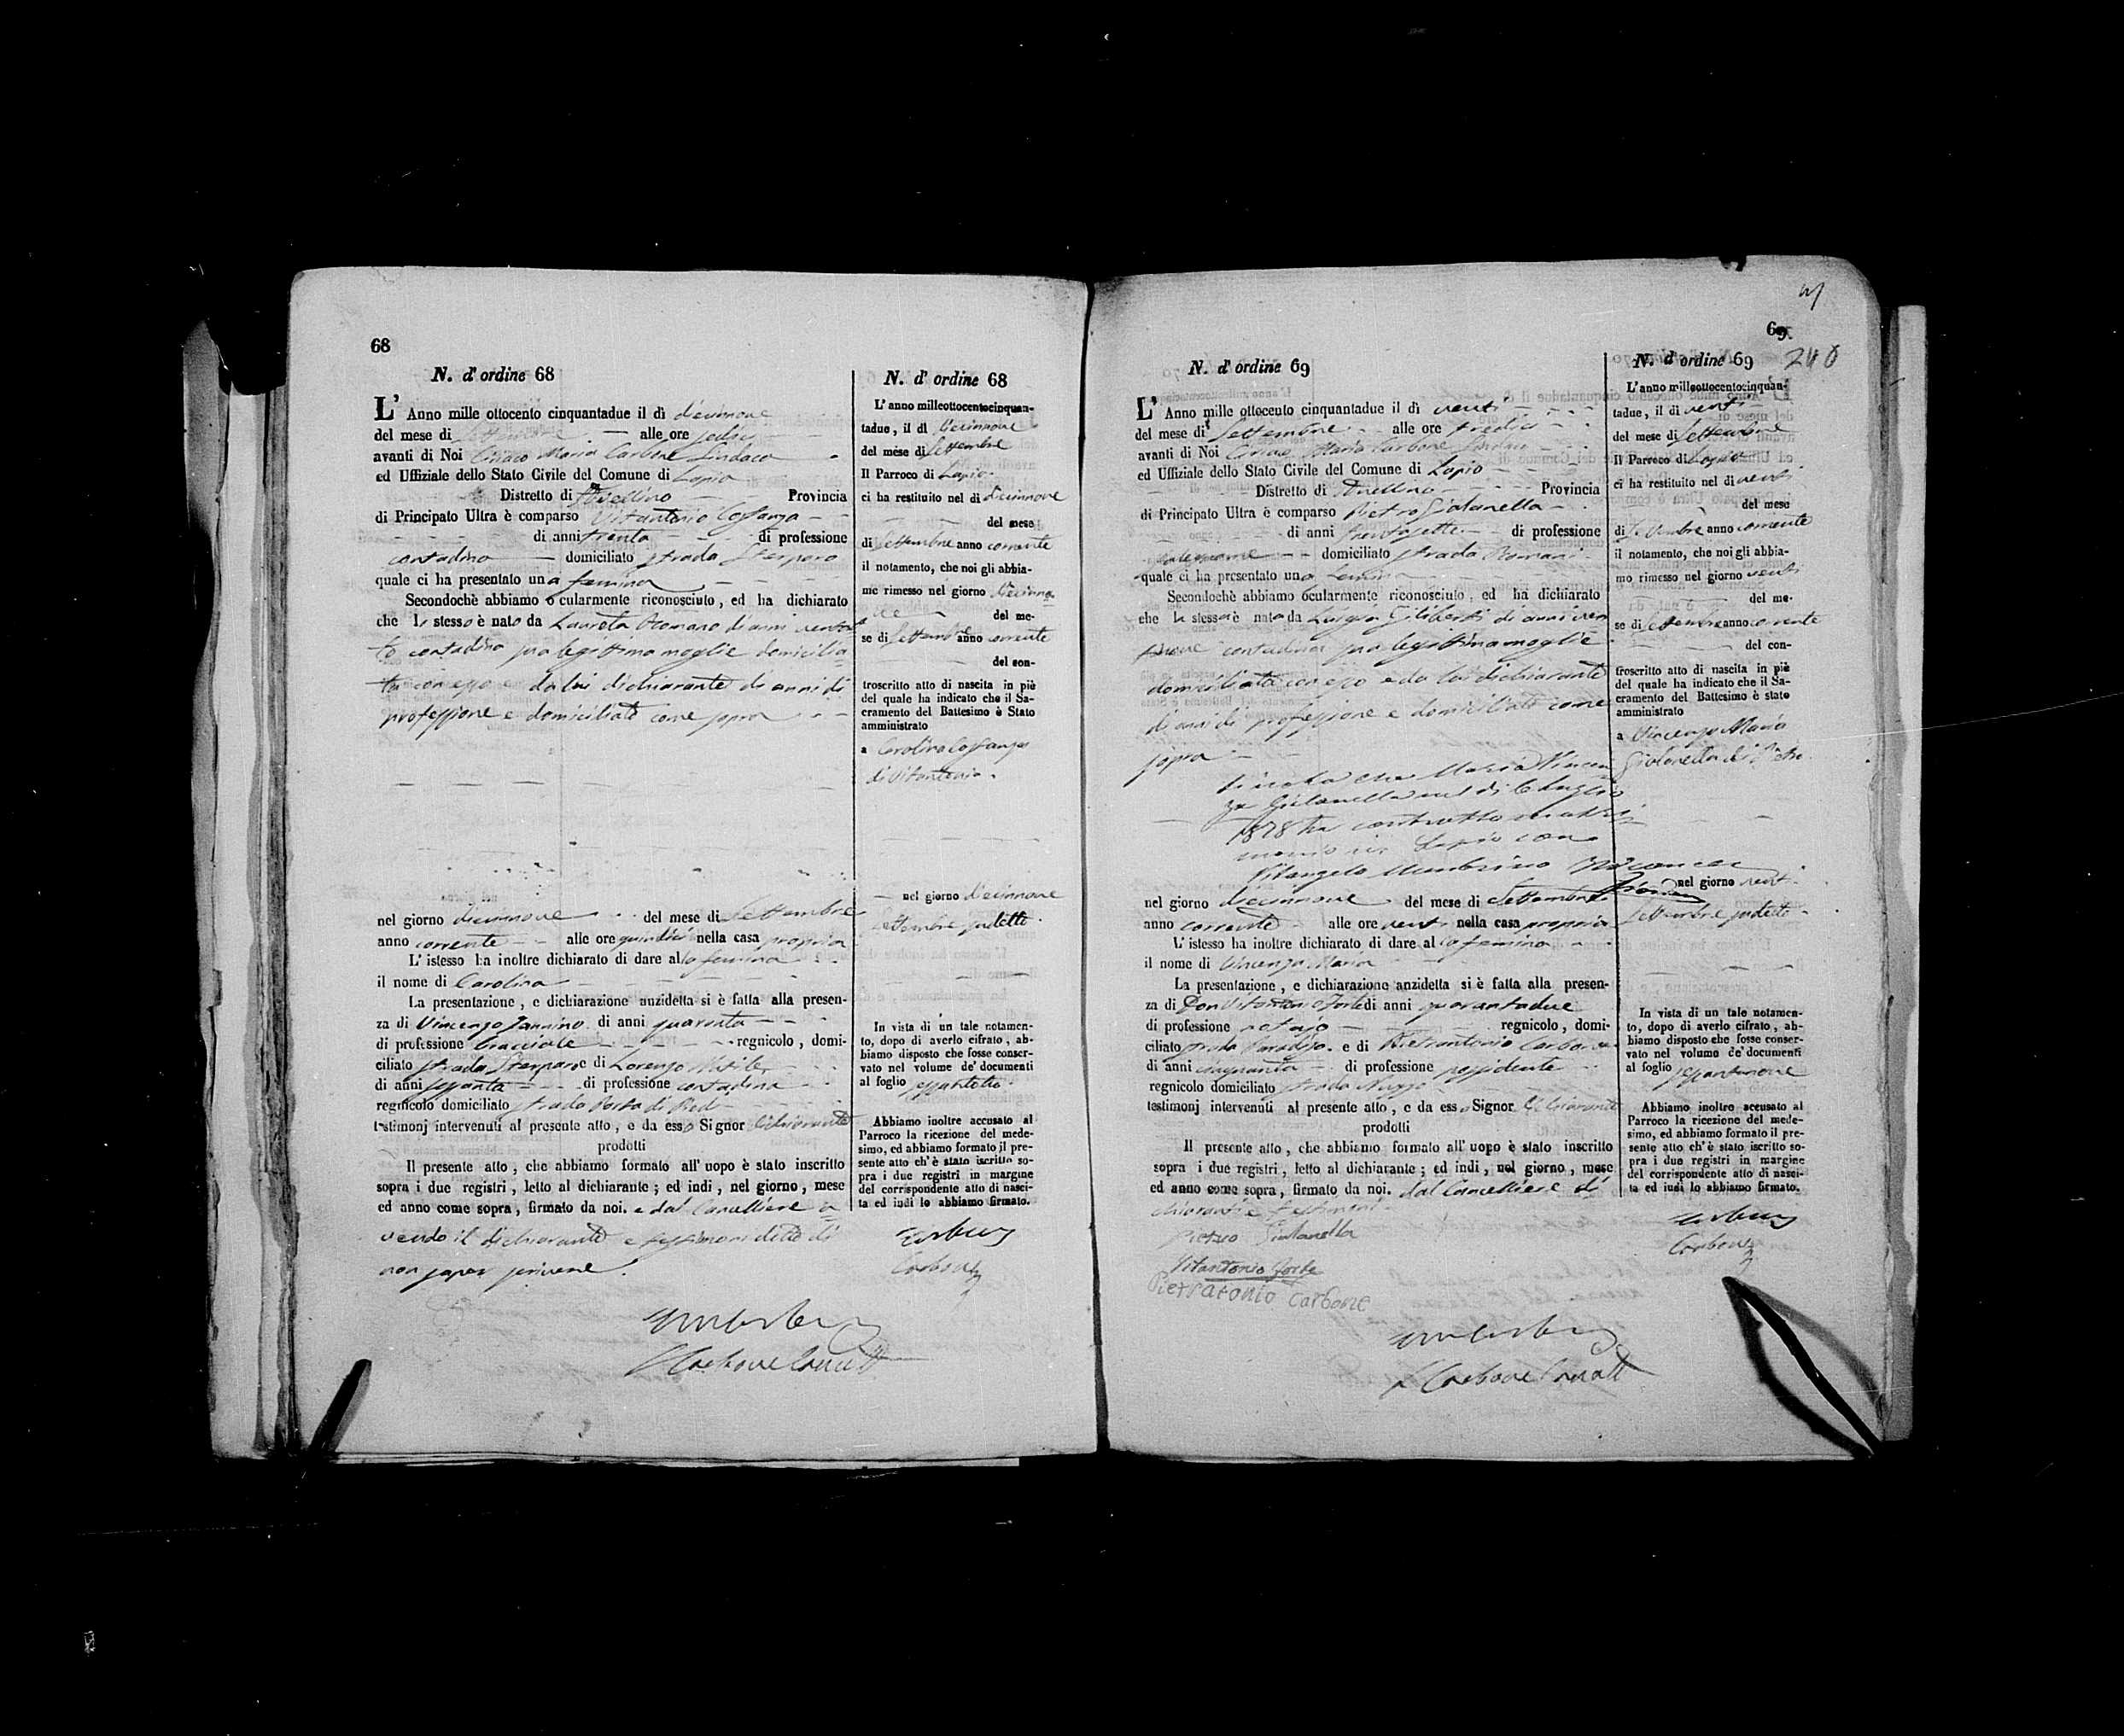 68
N. d' ordine 68
L' Anno mille ottocento cinquantadue il dì diecinnove
del mese di Settembre alle ore sedici
avanti di Noi Ciriaco Maria Carbone Sindaco
ed Uffiziale dello Stato Civile del Comune di Lapio
Distretto di Avellino Provincia
di Principato Ultra è comparso Vitantonio Cossanzo
di anni trenta di professione
contadino domiciliato strada Sterparo
quale ci ha presentato una femina
Secondochè abbiamo ocularmente riconosciuto, ed ha dichiarato
che la stessa è nata da Laureta Romano di anni
contadina sua legittima moglie domicilia=
ta con esso e da lui dichiarante di anni di
professione e domiciliato come sopra
nel giorno diecinnove del mese di Settembre
anno corrente alle ore quindici nella casa propria
L' istesso ha inoltre dichiarato di dare alla femina
il nome di Carolina
La presentazione, e dichiarazione anzidetta si è fatta alla presen-
za di Vincenzo Iannino di anni quaranta
di professione bracciale regnicolo, domi-
ciliato strada Sterparo e di Lorenzo
di anni sessanta di professione contadino
regnicolo domiciliato strada Porta di
testimonj intervenuti al presente atto, e da esso Signor dichiarante
prodotti
Il presente atto, che abbiamo formato all' uopo è stato inscritto
sopra i due registri, letto al dichiarante; ed indi, nel giorno, mese
ed anno come sopra, firmato da noi. e dal Cancelliere a=
vendo il dichiarante e testimoni detto di
non saper scrivere.
N. d' ordine 68
L' anno milleottocentocinquan-
tadue, il dì diecinnove
del mese di Settembre
Il Parroco di Lapio
ci ha restituito nel dì diecinnove
del mese
di Settembre anno corrente
il notamento, che noi gli abbia-
mo rimesso nel giorno diecinno=
ve del me-
se di Settembre anno corrente
del con-
troscritto atto di nascita in piè
del quale ha indicato che il Sa-
cramento del Battesimo è Stato
amministrato
a Carolina Cossanzo
di Vitantonio.
nel giorno diecinnove
Settembre sudetto.
In vista di un tale notamen-
to, dopo di averlo cifrato, ab-
biamo disposto che fosse conser-
vato nel volume de' documenti
al foglio
Abbiamo inoltre accusato al
Parroco la ricezione del mede-
simo, ed abbiamo formato il pre-
sente atto ch' è stato iscritto so-
pra i due registri in margine
del corrispondente atto di nasci-
ta ed indi lo abbiamo firmato.
Carbone
69.
240
N. d' ordine 69
L' Anno mille ottocento cinquantadue il dì venti
del mese di Settembre alle ore tredici
avanti di Noi Ciriaco Maria Carbone Sindaco
ed Uffiziale dello Stato Civile del Comune di Lapio
Distretto di Avellino Provincia
di Principato Ultra è comparso Pietro Giolanella
di anni trentasette di professione
domiciliato strada Romani
quale ci ha presentato una femina
Secondochè abbiamo ocularmente riconosciuto, ed ha dichiarato
che la stessa è nata da Luigia Giliberti di anni
contadina sua legittima moglie
domiciliata con esso e da lui dichiarante
di anni di professione e domiciliato come
sopra
che Maria Vincen
za Giolanella nel dì 6 Luglio
1878 ha contratto matri
monio in Lapio con
Vitangelo
nel giorno diecinnove del mese di Settembre
anno corrente alle ore venti nella casa propria
L' istesso ha inoltre dichiarato di dare alla femina
il nome di Vincenza Maria
La presentazione, e dichiarazione anzidetta si è fatta alla presen-
za di Don Vitantonio Forte di anni quarantadue
di professione notajo regnicolo, domi-
ciliato strada Paradiso e di Pietrantonio Carbone
di anni cinquanta di professione possidente
regnicolo domiciliato strada
testimonj intervenuti al presente atto, e da esso Signor dichiarante
prodotti
Il presente atto, che abbiamo formato all' uopo è stato inscritto
sopra i due registri, letto al dichiarante; ed indi, nel giorno, mese
ed anno come sopra, firmato da noi. dal Cancelliere di
chiarante e testimoni.
Pietro Giolanella
Vitantonio Forte
Pietratonio Carbone
N. d' ordine 69
L' anno milleottocentocinquan-
tadue, il dì venti
del mese di Settembre
Il Parroco di Lapio
ci ha restituito nel dì venti
del mese
di Settembre anno corrente
il notamento, che noi gli abbia-
mo rimesso nel giorno venti
del me-
se di Settembre anno corrente
del con-
troscritto atto di nascita in piè
del quale ha indicato che il Sa-
cramento del Battesimo è stato
amministrato
a Vincenza Maria
Giolanella di Pietro
nel giorno venti
Settembre sudetto
In vista di un tale notamen-
to, dopo di averlo cifrato, ab-
biamo disposto che fosse conser-
vato nel volume de' documenti
al foglio sessantanove
Abbiamo inoltre accusato al
Parroco la ricezione del mede-
simo, ed abbiamo formato il pre-
sente atto ch' è stato iscritto so-
pra i due registri in margine
del corrispondente atto di nasci-
ta ed indi lo abbiamo firmato.
Carbone